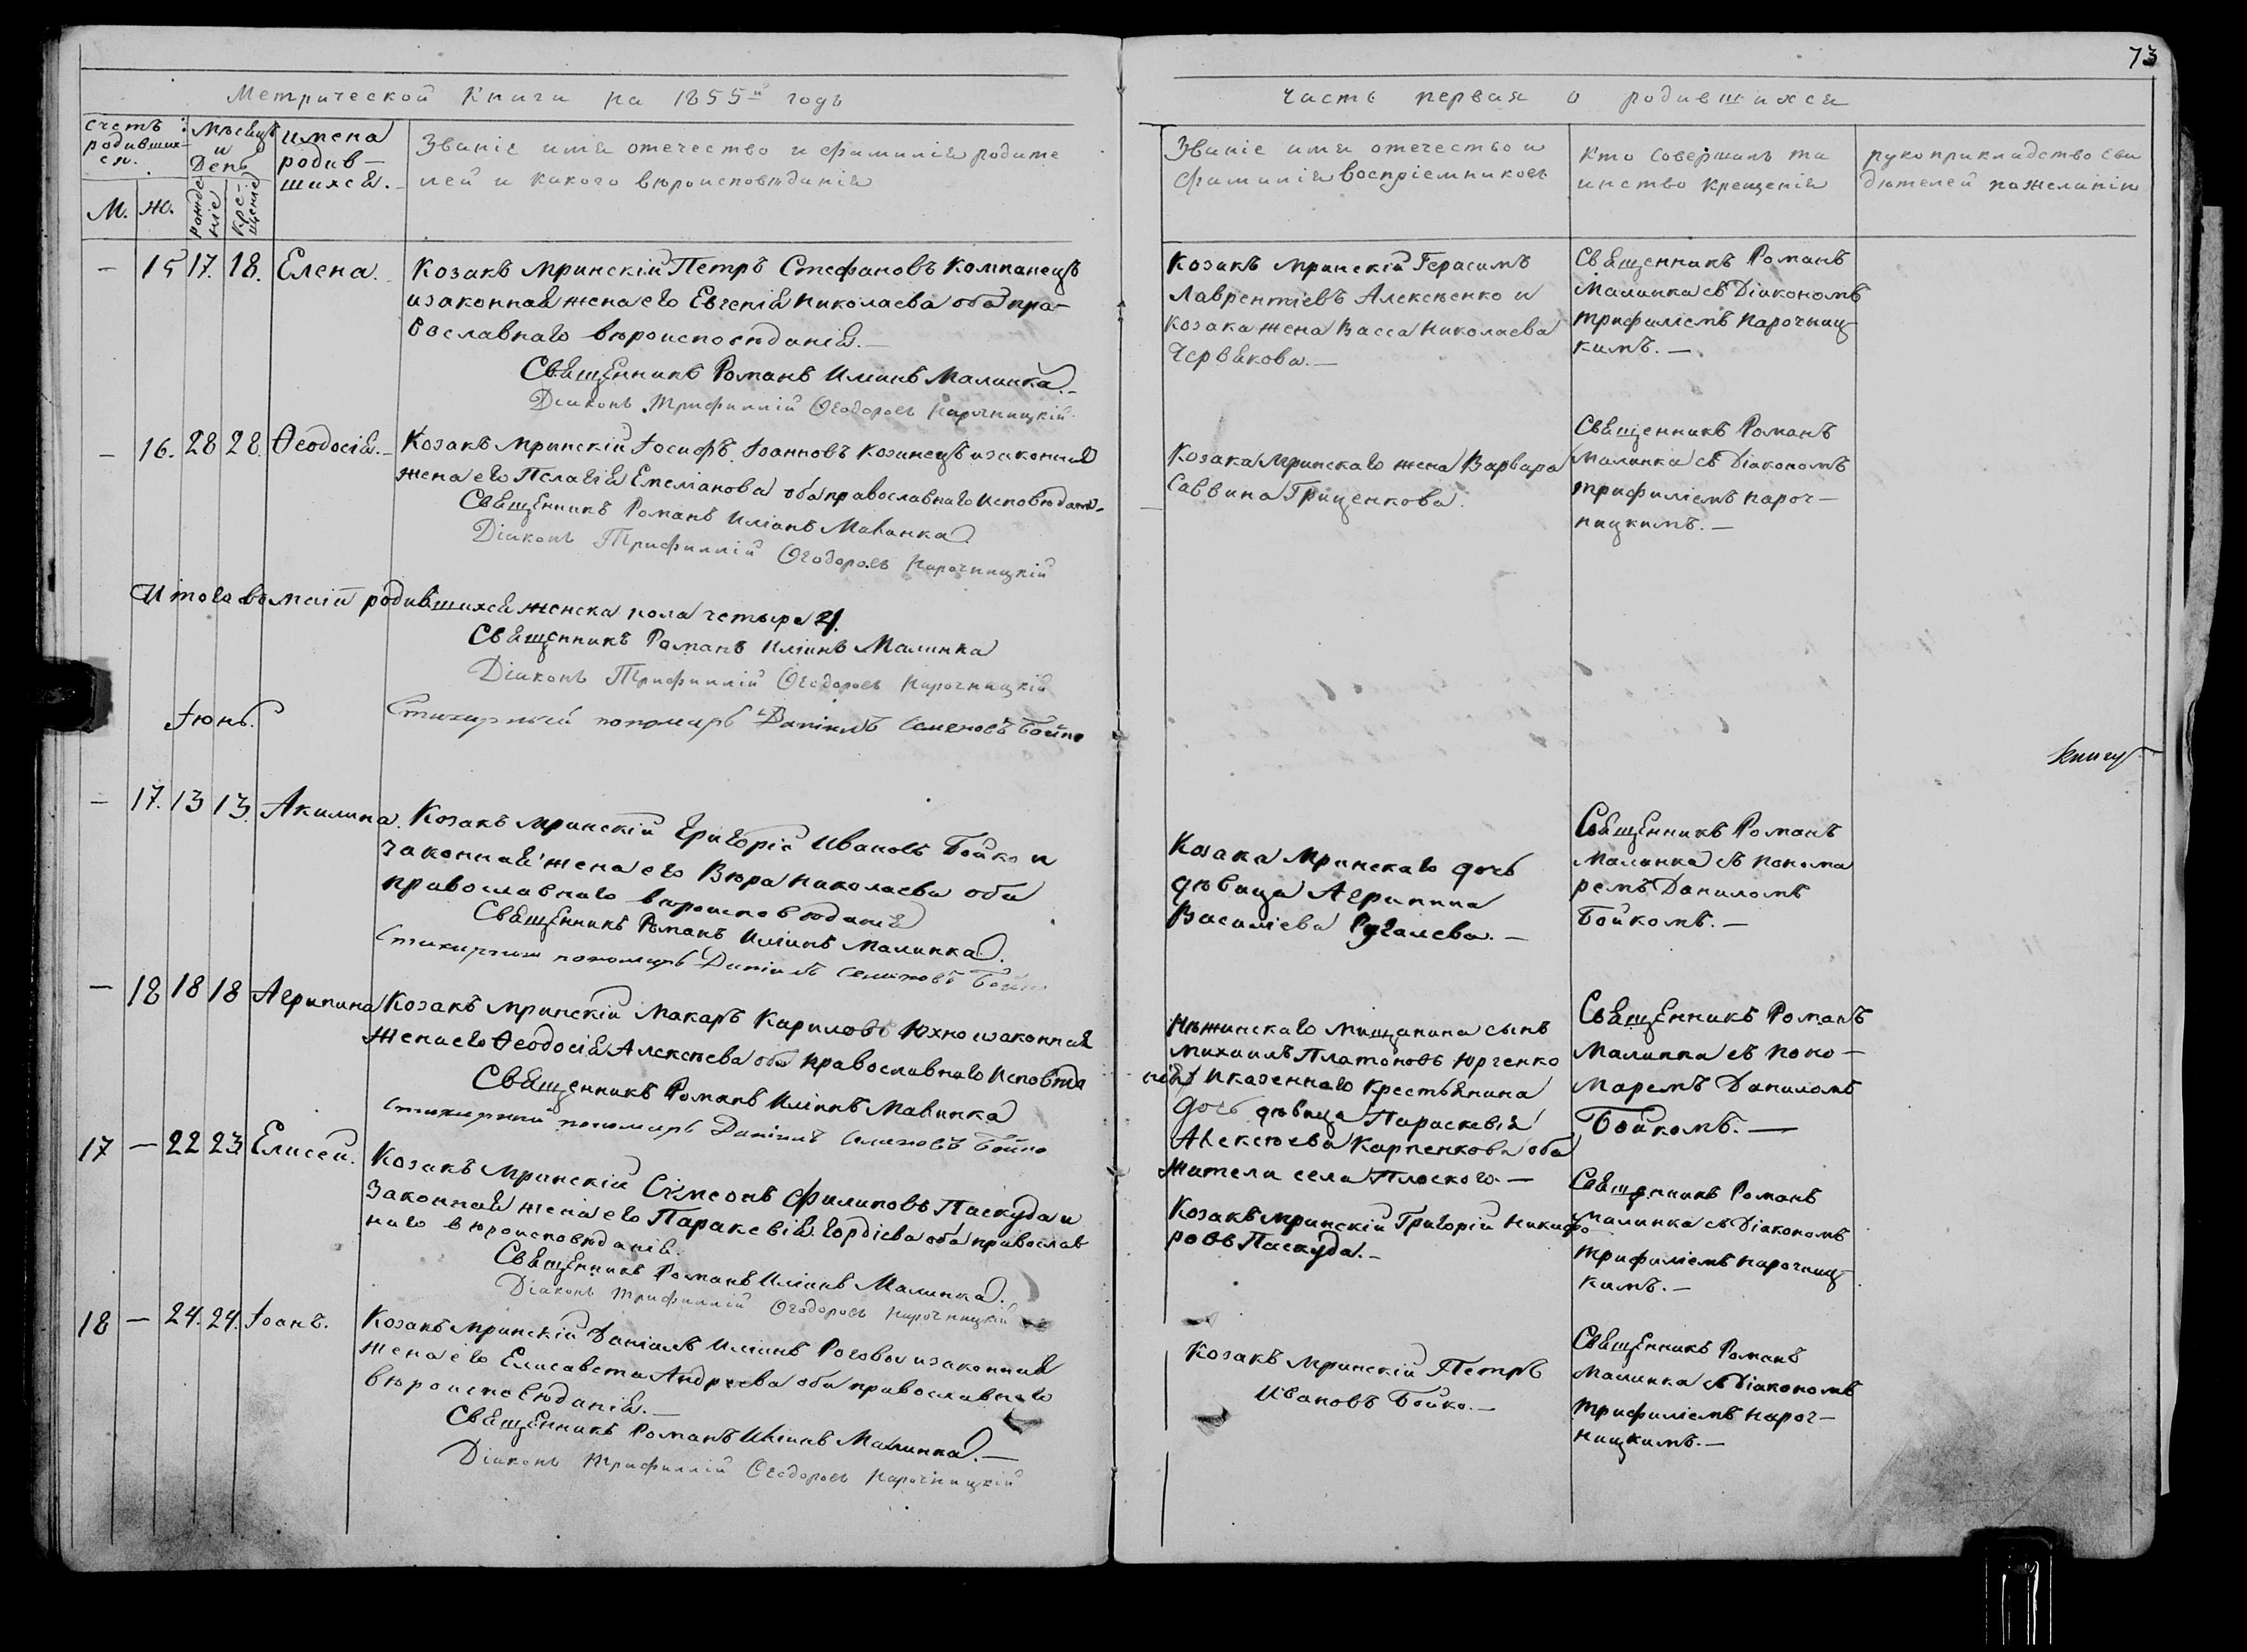 73
Метрической Книги на 1855й годъ
счетъ родившихся.
М.
Ж.
Мѣсяцъ и День
рожденіе
крещеніе
имена
родив-
шихся.
Званіе имя отечество и фамилія родите
лей и какого вѣроисповѣданія
- 15 17. 18. Елена.
Козакъ Мринскій Петръ Стефановъ Компанецъ
и законная жена его Евгенія Николаева оба пра-
вославнаго вѣроисповѣданія.-
Священникъ Романъ Иліинъ Малинка.-
Діаконъ Трифиллій Ѳеодоровъ Нарочницкій
- 16. 28 28. Ѳеодосія.-
Козакъ Мринскій Іосифъ Іоанновъ Козинецъ и законная
жена его Пелагія Емеліанова оба православнаго исповѣдан.
Священникъ Романъ Иліинъ Малинка.
Діаконъ Трифиллій Ѳеодоровъ Нарочницкій
Итого въ маіи родившихся женска пола четыре 4.
Священникъ Романъ Иліинъ Малинка
Діаконъ Трифиллій Ѳеодоровъ Нарочницкій
Стихирный пономарь Даніилъ Семеновъ Бойко
Іюнь.
- 17. 13 13. Акилина.
Козакъ Мринскій Григорій Ивановъ Бойко и
законная жена его Вѣра Николаева оба
православнаго вѣроисповѣданія
Священникъ Романъ Иліинъ Малинка.
Стихирный пономарь Даніилъ Семеновъ Бойко
- 18 18 18 Агрипина
Козакъ Мринскій Макаръ Кириловъ Юхно и законная
жена его Ѳеодосія Алексѣева оба православнаго исповѣда
нія
Священникъ Романъ Иліинъ Малинка
Стихирный пономарь Даніилъ Семеновъ Бойко
17 - 22 23 Елисей.
Козакъ Мринскій Сімеонъ Филиповъ Паскуда и
законная жена его Паракевія Гордіева оба православ
наго вѣроисповѣданія.
Священникъ Романъ Иліинъ Малинка.
Діаконъ Трифиллій Ѳеодоровъ Нарочницкій
18 - 24. 24. Іоанъ.
Козакъ Мринскій Даніилъ Иліинъ Рогова и законная
жена его Елисавета Андреева оба православнаго
вѣроисповѣданія.-
Священникъ Романъ Иліинъ Малинка.-
Діаконъ Трифиллій Ѳеодоровъ Нарочницкій
Часть первая о родившихся
Званіе имя отечество и
фамилія воспріемниковъ
Кто совершалъ та
инство крещенія
рукоприкладство сви
дѣтелей по желанію
Козакъ Мринскій Герасимъ
Лаврентіевъ Алексѣенко и
козака жена Васса Николаева
Червякова.-
Священникъ Романъ
Малинка съ Діакономъ
Трифиліемъ Нарочниц
кимъ.-
Козака Мринскаго жена Варвара
Саввина Гриценкова.
Священникъ Романъ
Малинка съ Діакономъ
Трифиліемъ Нароч-
ницкимъ.-
книгу
Козака Мринскаго дочь
дѣвица Агрипина
Василіева Ругалева.-
Священникъ Романъ
Малинка съ понома
ремъ Даниломъ
Бойкомъ.-
Нѣжинскаго мищанина сынъ
Михаилъ Платоновъ Юрченко
и казеннаго крестьянина
дочь дѣвица Параскевія
Алексѣева Карпенкова оба
жители села Плоского.-
Священникъ Романъ
Малинка съ поно-
маремъ Даниломъ
Бойкомъ.-
Козакъ Мринскій Григорій Никифо
ровъ Паскуда.-
Священникъ Романъ
Малинка съ Діакономъ
Трифиліемъ Нарочниц
кимъ.-
Козакъ Мринскій Петръ
Ивановъ Бойко.-
Священникъ Романъ
Малинка съ Діакономъ
Трифиліемъ Нароч-
ницкимъ.-